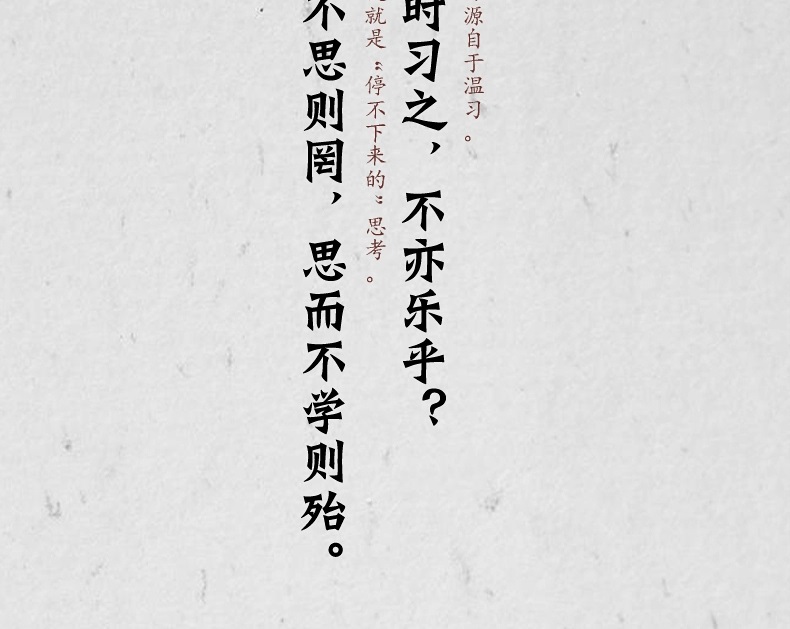 源自于温习。
时习之，不亦乐乎？
就是“停不下来的”思考。
不思则罔，思而不学则殆。